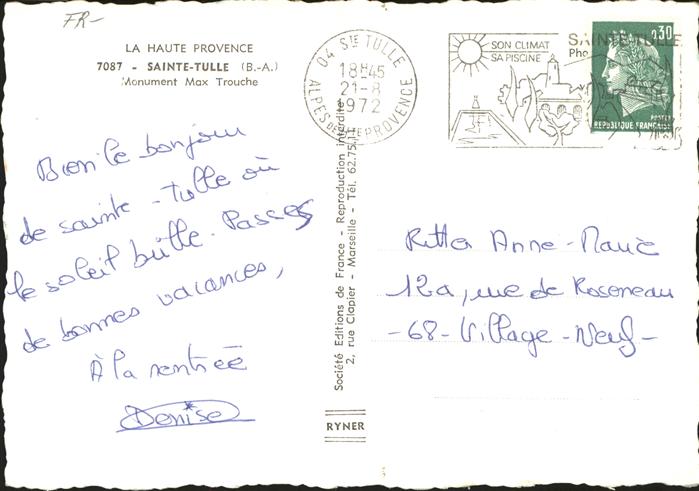 FR-
LA HAUTE PROVENCE
7087 - SAINTE-TULLE (B.-A.)
Monument Max Trouche
04 STE TULLE
18H45
21-8
1972
ALPES DE HTE PROVENCE
SON CLIMAT
SA PISCINE
SAINTE TULLE
0,30
POSTES
REPUBLIQUE FRANÇAISE
Bien le bonjour
de sainte-tulle où
le soleil brille. Passes
de bonnes vacances,
À la rentrée
Denise
Société Editions de France - Reproduction interdite
2, rue Clapier - Marseille - Tél. 62.75.
RYNER
Ritter Anne-Marie
12a, rue de Roseneau
-68-Village-Neuf-